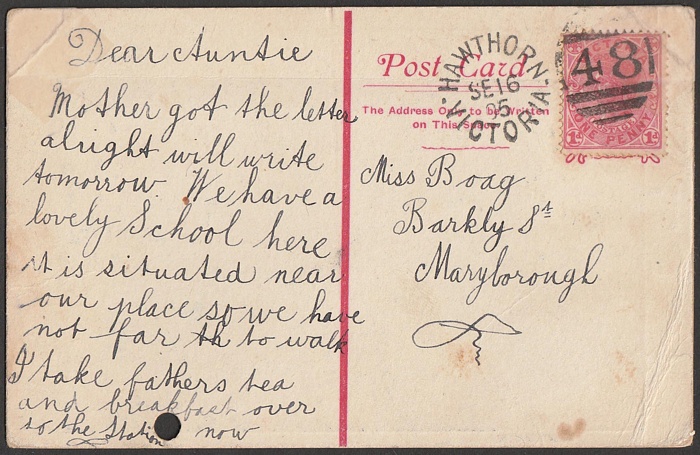 Dear Auntie
Mother got the letter
alright will write
tomorrow. We have a
lovely School here
it is situated near
our place so we have
not far th to walk
I take fathers tea
and breakfast over
to the Station now
Post Card
The Address Only to be Written
on This Side
HAWTHORN
SE 16
05
VICTORIA
481
ONE PENNY
1d 1d
Miss Boag
Barkly St
Maryborough